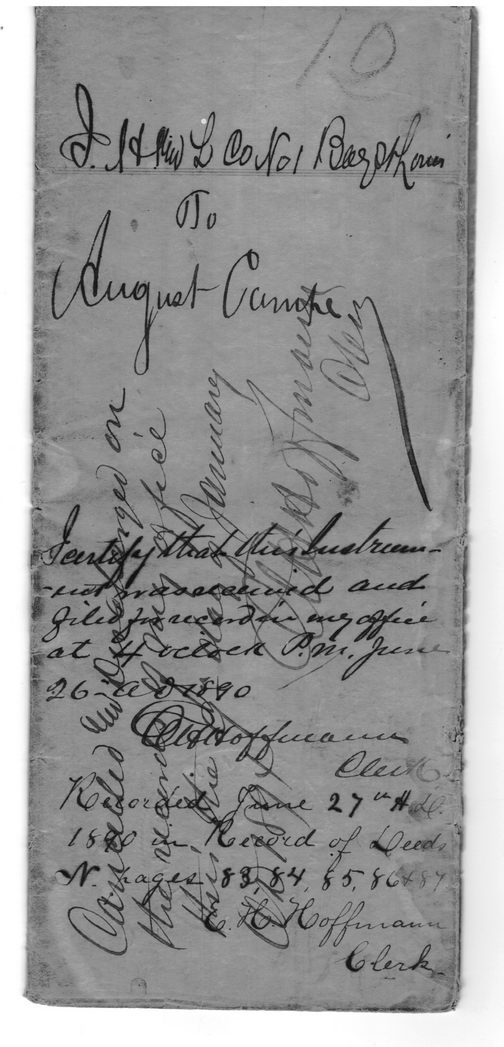 10
J. H and L Co No 1 Bay St Louis
To
August Campe
I certify that this Instrum-
-ent was received and
filed for record in my office
at 4 oclock P.m. June
26 - A D 1890
C H Hoffmann
Clerk
Recorded June 27th A D.
1890 in Record of Deeds
N. pages 83, 84, 85, 86 & 87
C. H. Hoffmann
Clerk.
Cancelled and Discharged on
the record of my office
this the day of January
AD 189
Hoffmann
Clerk